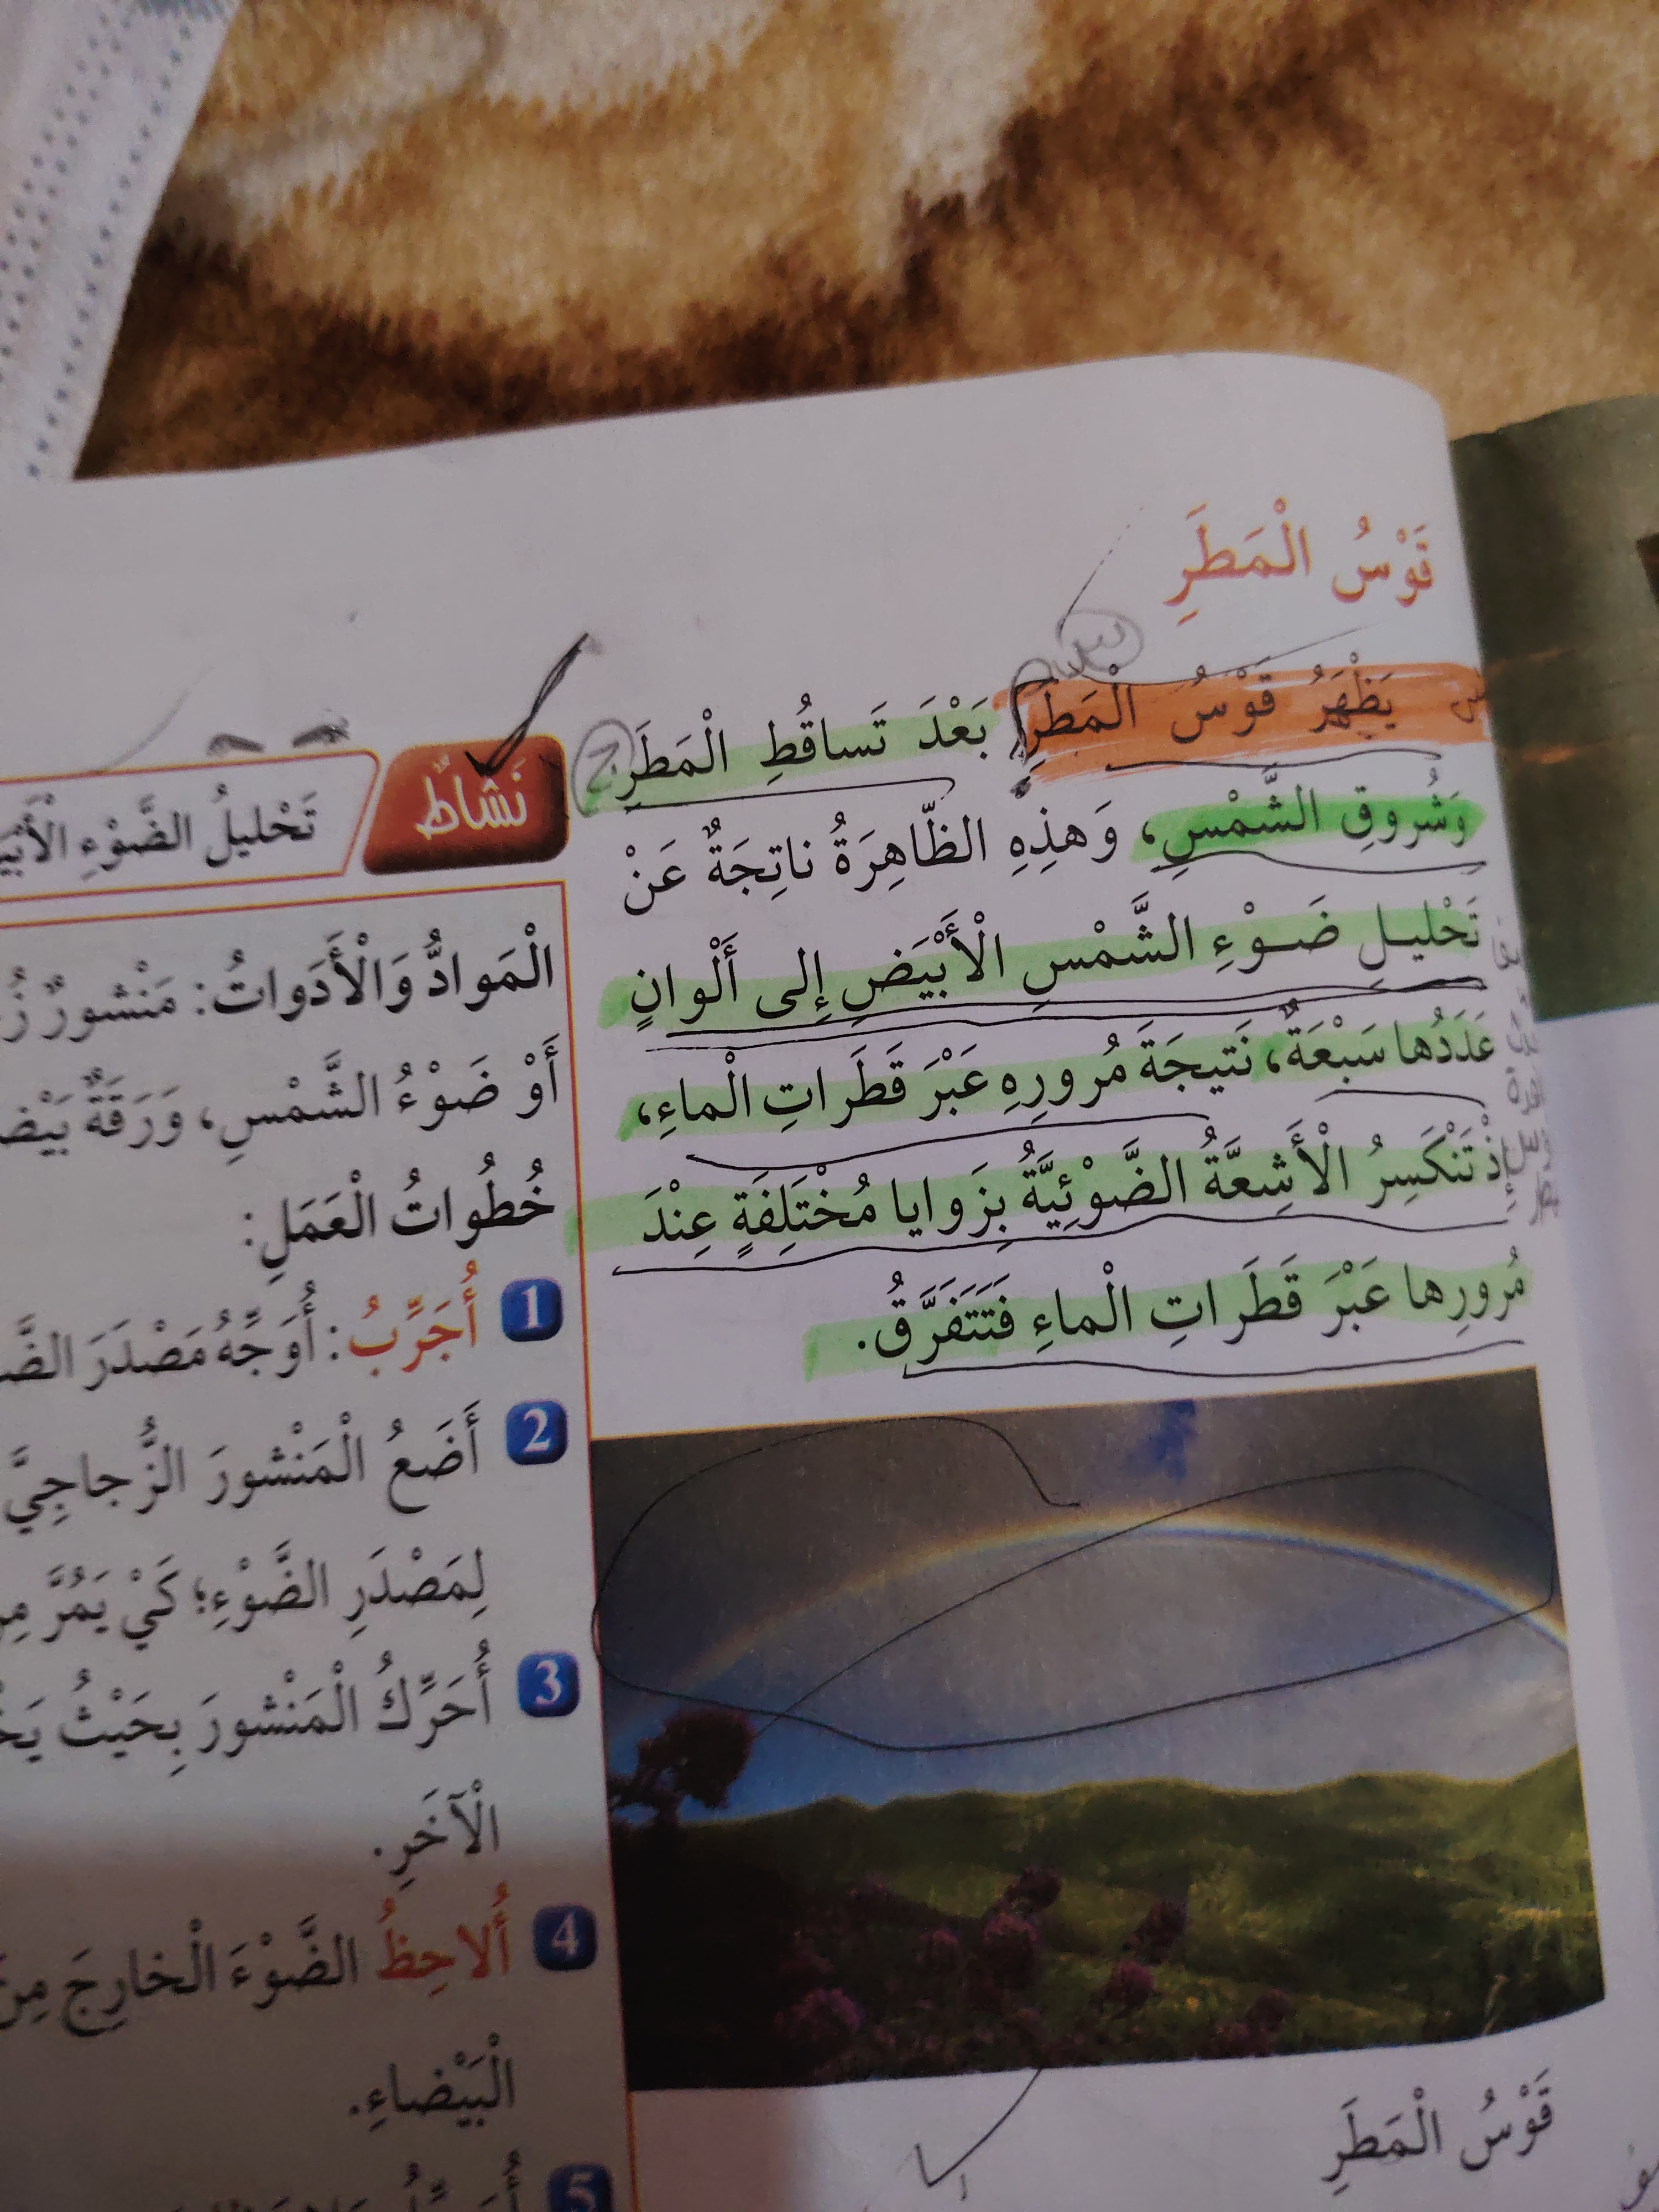 قَوْسُ الْمَطَرِ
يَظْهَرُ قَوْسُ الْمَطَرِ بَعْدَ تَساقُطِ الْمَطَرِ
وَشُروقِ الشَّمْسِ، وَهذِهِ الظّاهِرَةُ ناتِجَةٌ عَنْ
تَحْليلِ ضَوْءِ الشَّمْسِ الْأَبْيَضِ إِلى أَلْوانٍ
عَدَدُها سَبْعَةٌ، نَتيجَةَ مُرورِهِ عَبْرَ قَطَراتِ الْماءِ،
إِذْ تَنْكَسِرُ الْأَشِعَّةُ الضَّوْئِيَّةُ بِزَوايا مُخْتَلِفَةٍ عِنْدَ
مُرورِها عَبْرَ قَطَراتِ الْماءِ فَتَتَفَرَّقُ.
قَوْسُ الْمَطَرِ
نَشاطٌ
تَحْليلُ الضَّوْءِ
الْمَوادُّ وَالْأَدَواتُ: مَنْشورٌ
أَوْ ضَوْءُ الشَّمْسِ، وَرَقَةٌ
خُطُواتُ الْعَمَلِ:
1 أُجَرِّبُ: أُوَجِّهُ مَصْدَرَ
2 أَضَعُ الْمَنْشورَ الزُّجاجِيَّ
لِمَصْدَرِ الضَّوْءِ؛ كَيْ يَمُرَّ
3 أُحَرِّكُ الْمَنْشورَ بِحَيْثُ
الْآخَرِ.
4 أُلاحِظُ الضَّوْءَ الْخارِجَ
الْبَيْضاءِ.
5